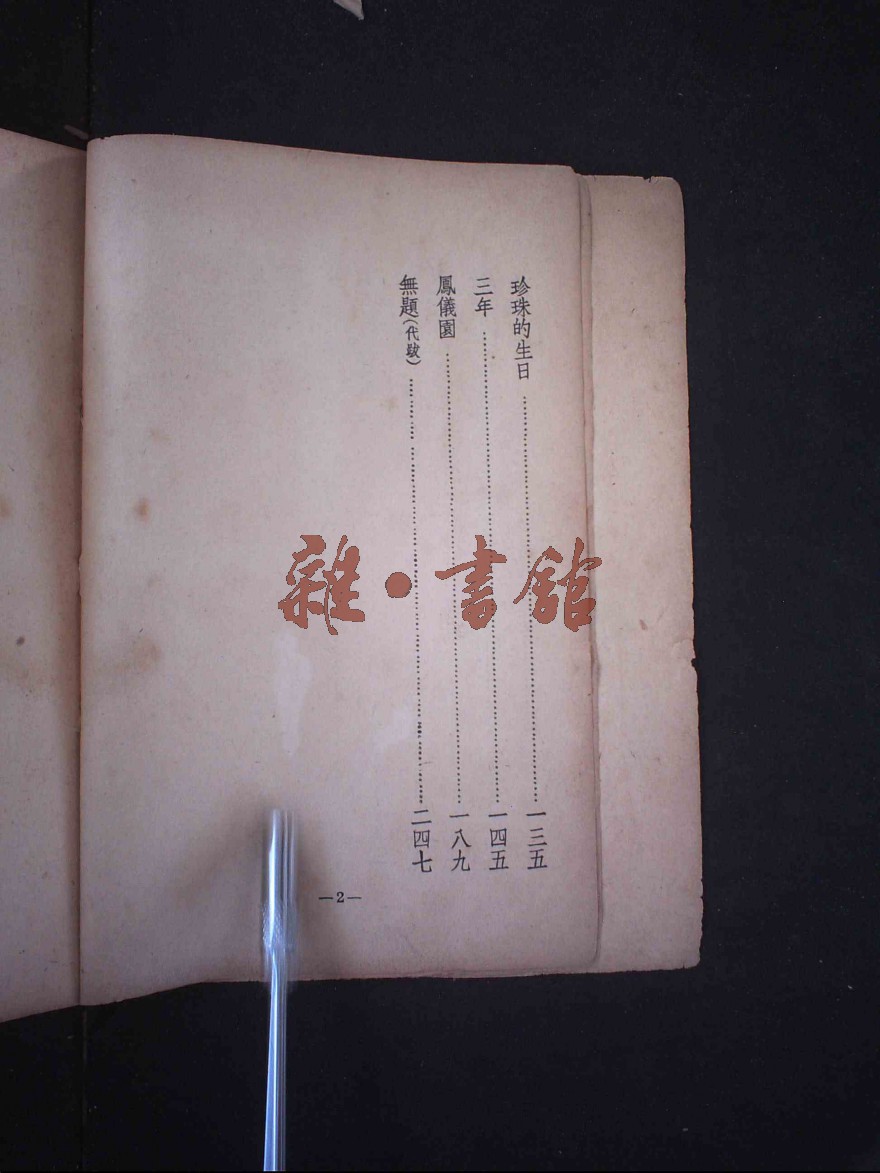 珍珠的生日……一三五
三年……一四五
鳳儀園……一八九
無題(代跋)……二四七
—2—
雜·書館